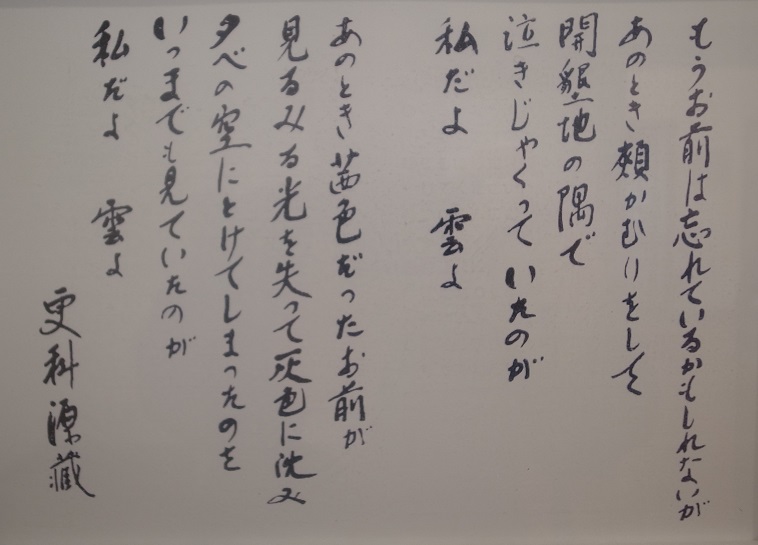 もうお前は忘れているかもしれないが
あのとき頬かむりをして
開墾地の隅で
泣きじゃくっていたのが
私だよ 雲よ
あのとき茜色だったお前が
見るみる光を失って灰色に沈み
夕べの空にとけてしまったのを
いつまでも見ていたのが
私だよ 雲よ
更科源藏